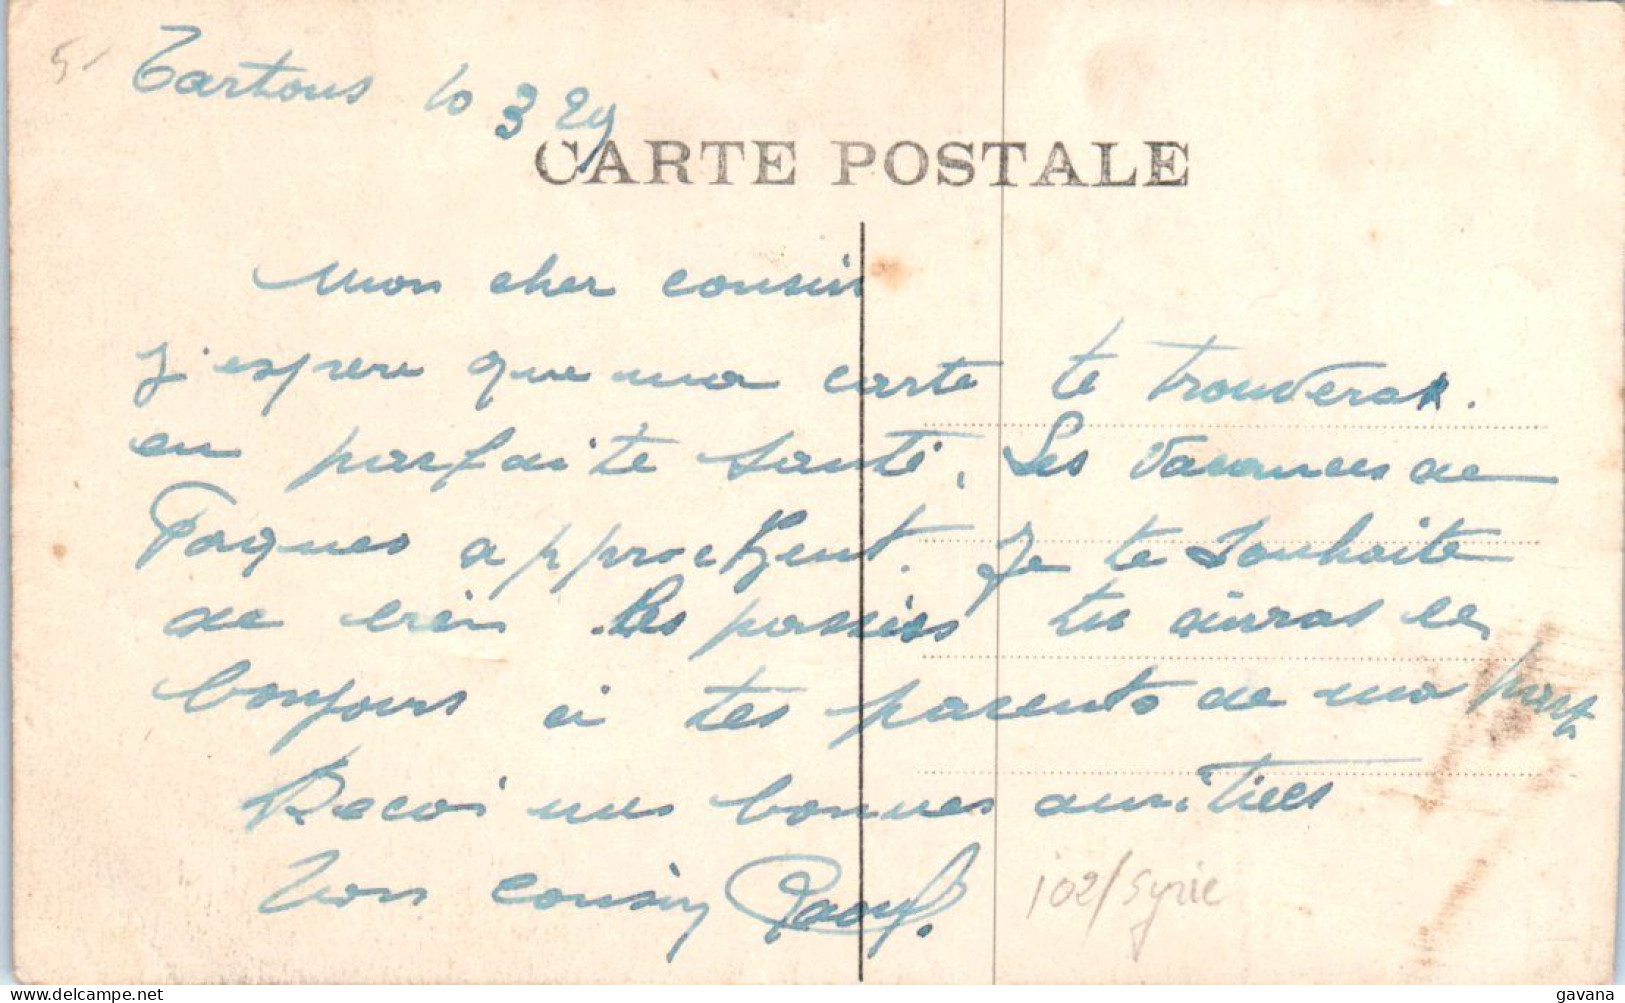 5-
Tartous 10 3 29
CARTE POSTALE
Mon cher cousin
J'espere que ma carte te trouveras.
en parfaite santé. Les vacances de
Paques approchent. Je te souhaite
de bien les passées tu diras les
bonjours à tes parents de ma part
Recoi mes bonnes amitiées
Ton cousin Raouf.
102/Syrie
delcampe.net
gavana